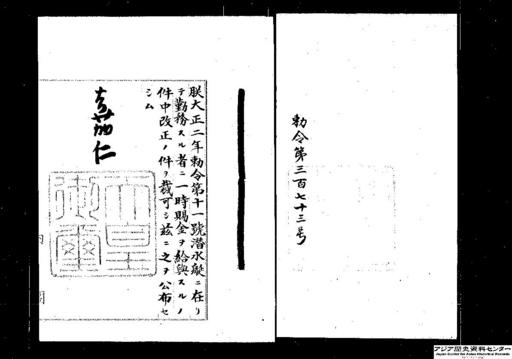 勅令第三百七十三号
朕大正二年勅令第十一號潜水艇ニ在リ
テ勤務スル者ニ一時賜金ヲ給與スルノ
件中改正ノ件ヲ裁可シ茲ニ之ヲ公布セ
シム
嘉仁
天皇
御璽
アジア歴史資料センター
Japan Center for Asian Historical Records